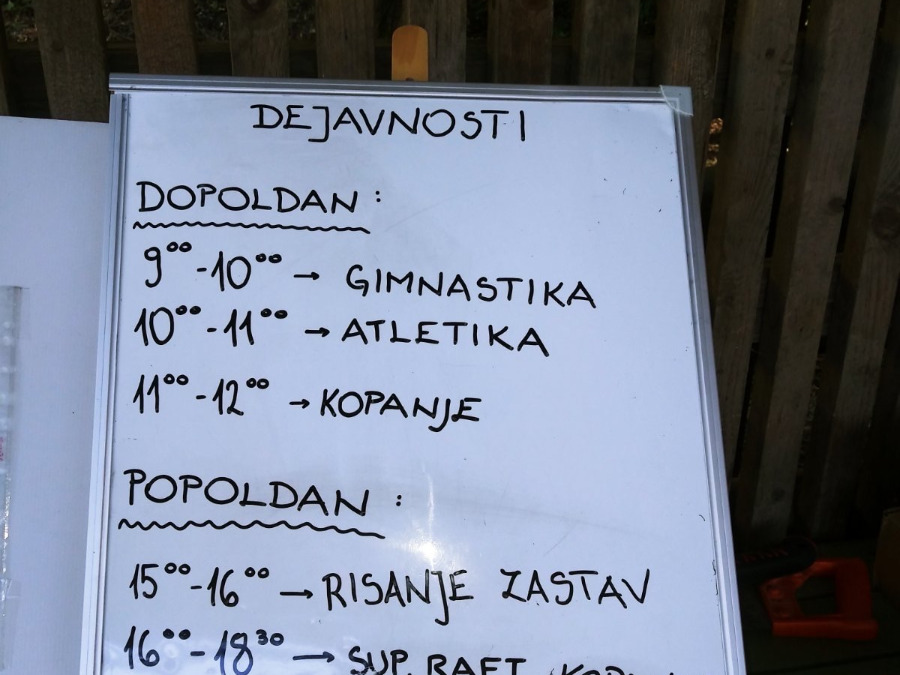 DEJAVNOSTI
DOPOLDAN :
9⁰⁰-10⁰⁰ → GIMNASTIKA
10⁰⁰-11⁰⁰ → ATLETIKA
11⁰⁰-12⁰⁰ → KOPANJE
POPOLDAN :
15⁰⁰-16⁰⁰ → RISANJE ZASTAV
16⁰⁰-18³⁰ → SUP, RAFT,